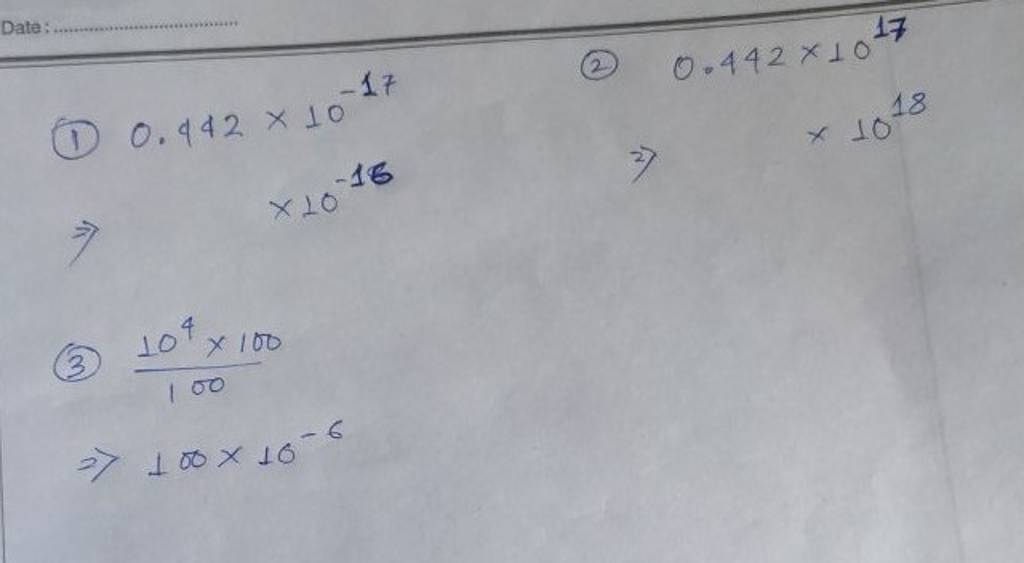 Date : ........................................
① 0.442 × 10⁻¹⁷
⇒ × 10⁻¹⁶
② 0.442 × 10¹⁷
⇒ × 10¹⁸
③ 10⁴ × 100
100
⇒ 100 × 10⁻⁶